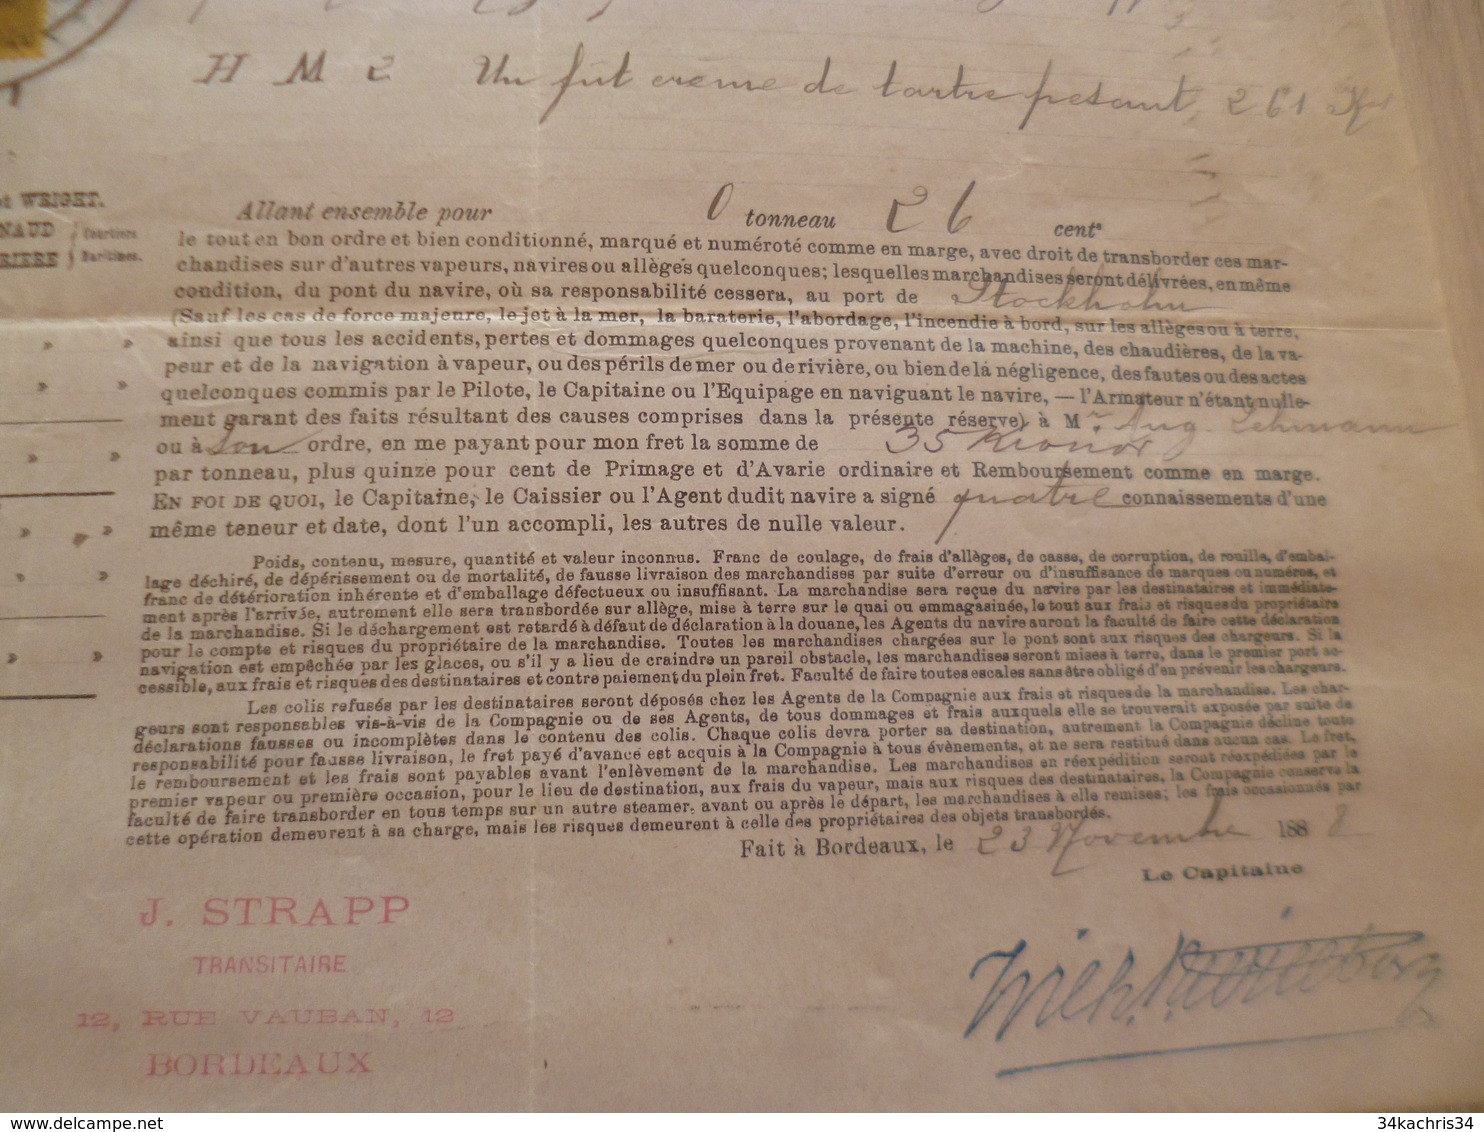 H M 2 Un fût crème de tartre pesant 261 Ks
WEIGHT.
NAUD
RIERE
Courtiers
Maritimes.
Allant ensemble pour 0 tonneau 26 cent^s
le tout en bon ordre et bien conditionné, marqué et numéroté comme en marge, avec droit de transborder ces mar-
chandises sur d'autres vapeurs, navires ou allèges quelconques; lesquelles marchandises seront délivrées, en même
condition, du pont du navire, où sa responsabilité cessera, au port de Stockholm
(Sauf les cas de force majeure, le jet à la mer, la baraterie, l'abordage, l'incendie à bord, sur les allèges ou à terre,
ainsi que tous les accidents, pertes et dommages quelconques provenant de la machine, des chaudières, de la va-
peur et de la navigation à vapeur, ou des périls de mer ou de rivière, ou bien de la négligence, des fautes ou des actes
quelconques commis par le Pilote, le Capitaine ou l'Equipage en naviguant le navire, — l'Armateur n'étant nulle-
ment garant des faits résultant des causes comprises dans la présente réserve) à M^r Aug. Lehmann
ou à son ordre, en me payant pour mon fret la somme de 35 Kronor
par tonneau, plus quinze pour cent de Primage et d'Avarie ordinaire et Remboursement comme en marge.
EN FOI DE QUOI, le Capitaine, le Caissier ou l'Agent dudit navire a signé quatre connaissements d'une
même teneur et date, dont l'un accompli, les autres de nulle valeur.
Poids, contenu, mesure, quantité et valeur inconnus. Franc de coulage, de frais d'allèges, de casse, de corruption, de rouille, d'embal-
lage déchiré, de dépérissement ou de mortalité, de fausse livraison des marchandises par suite d'erreur ou d'insuffisance de marques ou numéros, et
franc de détérioration inhérente et d'emballage défectueux ou insuffisant. La marchandise sera reçue du navire par les destinataires et immédiate-
ment après l'arrivée, autrement elle sera transbordée sur allège, mise à terre sur le quai ou emmagasinée, le tout aux frais et risques du propriétaire
de la marchandise. Si le déchargement est retardé à défaut de déclaration à la douane, les Agents du navire auront la faculté de faire cette déclaration
pour le compte et risques du propriétaire de la marchandise. Toutes les marchandises chargées sur le pont sont aux risques des chargeurs. Si la
navigation est empêchée par les glaces, ou s'il y a lieu de craindre un pareil obstacle, les marchandises seront mises à terre, dans le premier port ac-
cessible, aux frais et risques des destinataires et contre paiement du plein fret. Faculté de faire toutes escales sans être obligé d'en prévenir les chargeurs.
Les colis refusés par les destinataires seront déposés chez les Agents de la Compagnie aux frais et risques de la marchandise. Les char-
geurs sont responsables vis-à-vis de la Compagnie ou de ses Agents, de tous dommages et frais auxquels elle se trouverait exposée par suite de
déclarations fausses ou incomplètes dans le contenu des colis. Chaque colis devra porter sa destination, autrement la Compagnie décline toute
responsabilité pour fausse livraison, le fret payé d'avance est acquis à la Compagnie à tous évènements, et ne sera restitué dans aucun cas. Le fret,
le remboursement et les frais sont payables avant l'enlèvement de la marchandise. Les marchandises en réexpédition seront réexpédiées par le
premier vapeur ou première occasion, pour le lieu de destination, aux frais du vapeur, mais aux risques des destinataires, la Compagnie conserve la
faculté de faire transborder en tous temps sur un autre steamer, avant ou après le départ, les marchandises à elle remises; les frais occasionnés par
cette opération demeurent à sa charge, mais les risques demeurent à celle des propriétaires des objets transbordés.
Fait à Bordeaux, le 23 Novembre 1888
Le Capitaine
J. STRAPP
TRANSITAIRE
12, RUE VAUBAN, 12
BORDEAUX
34kachris34